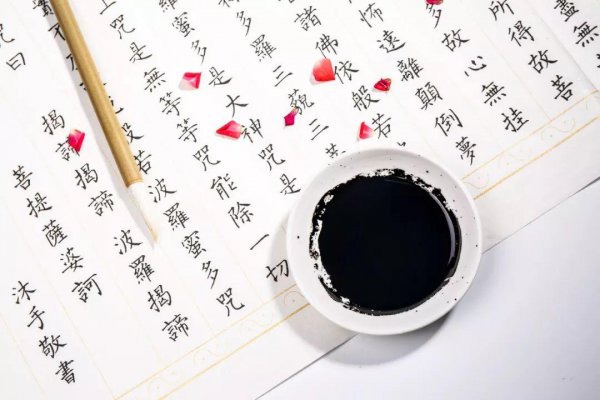 盡無
所得故菩
多故心無挂
怖遠離顛倒夢
諸佛依般若
多羅三藐三
羅蜜多是大神咒是
咒是無等等咒能除一切
般若波羅蜜多咒
咒曰
揭諦揭諦波羅揭諦
菩提薩婆訶
沐手敬書